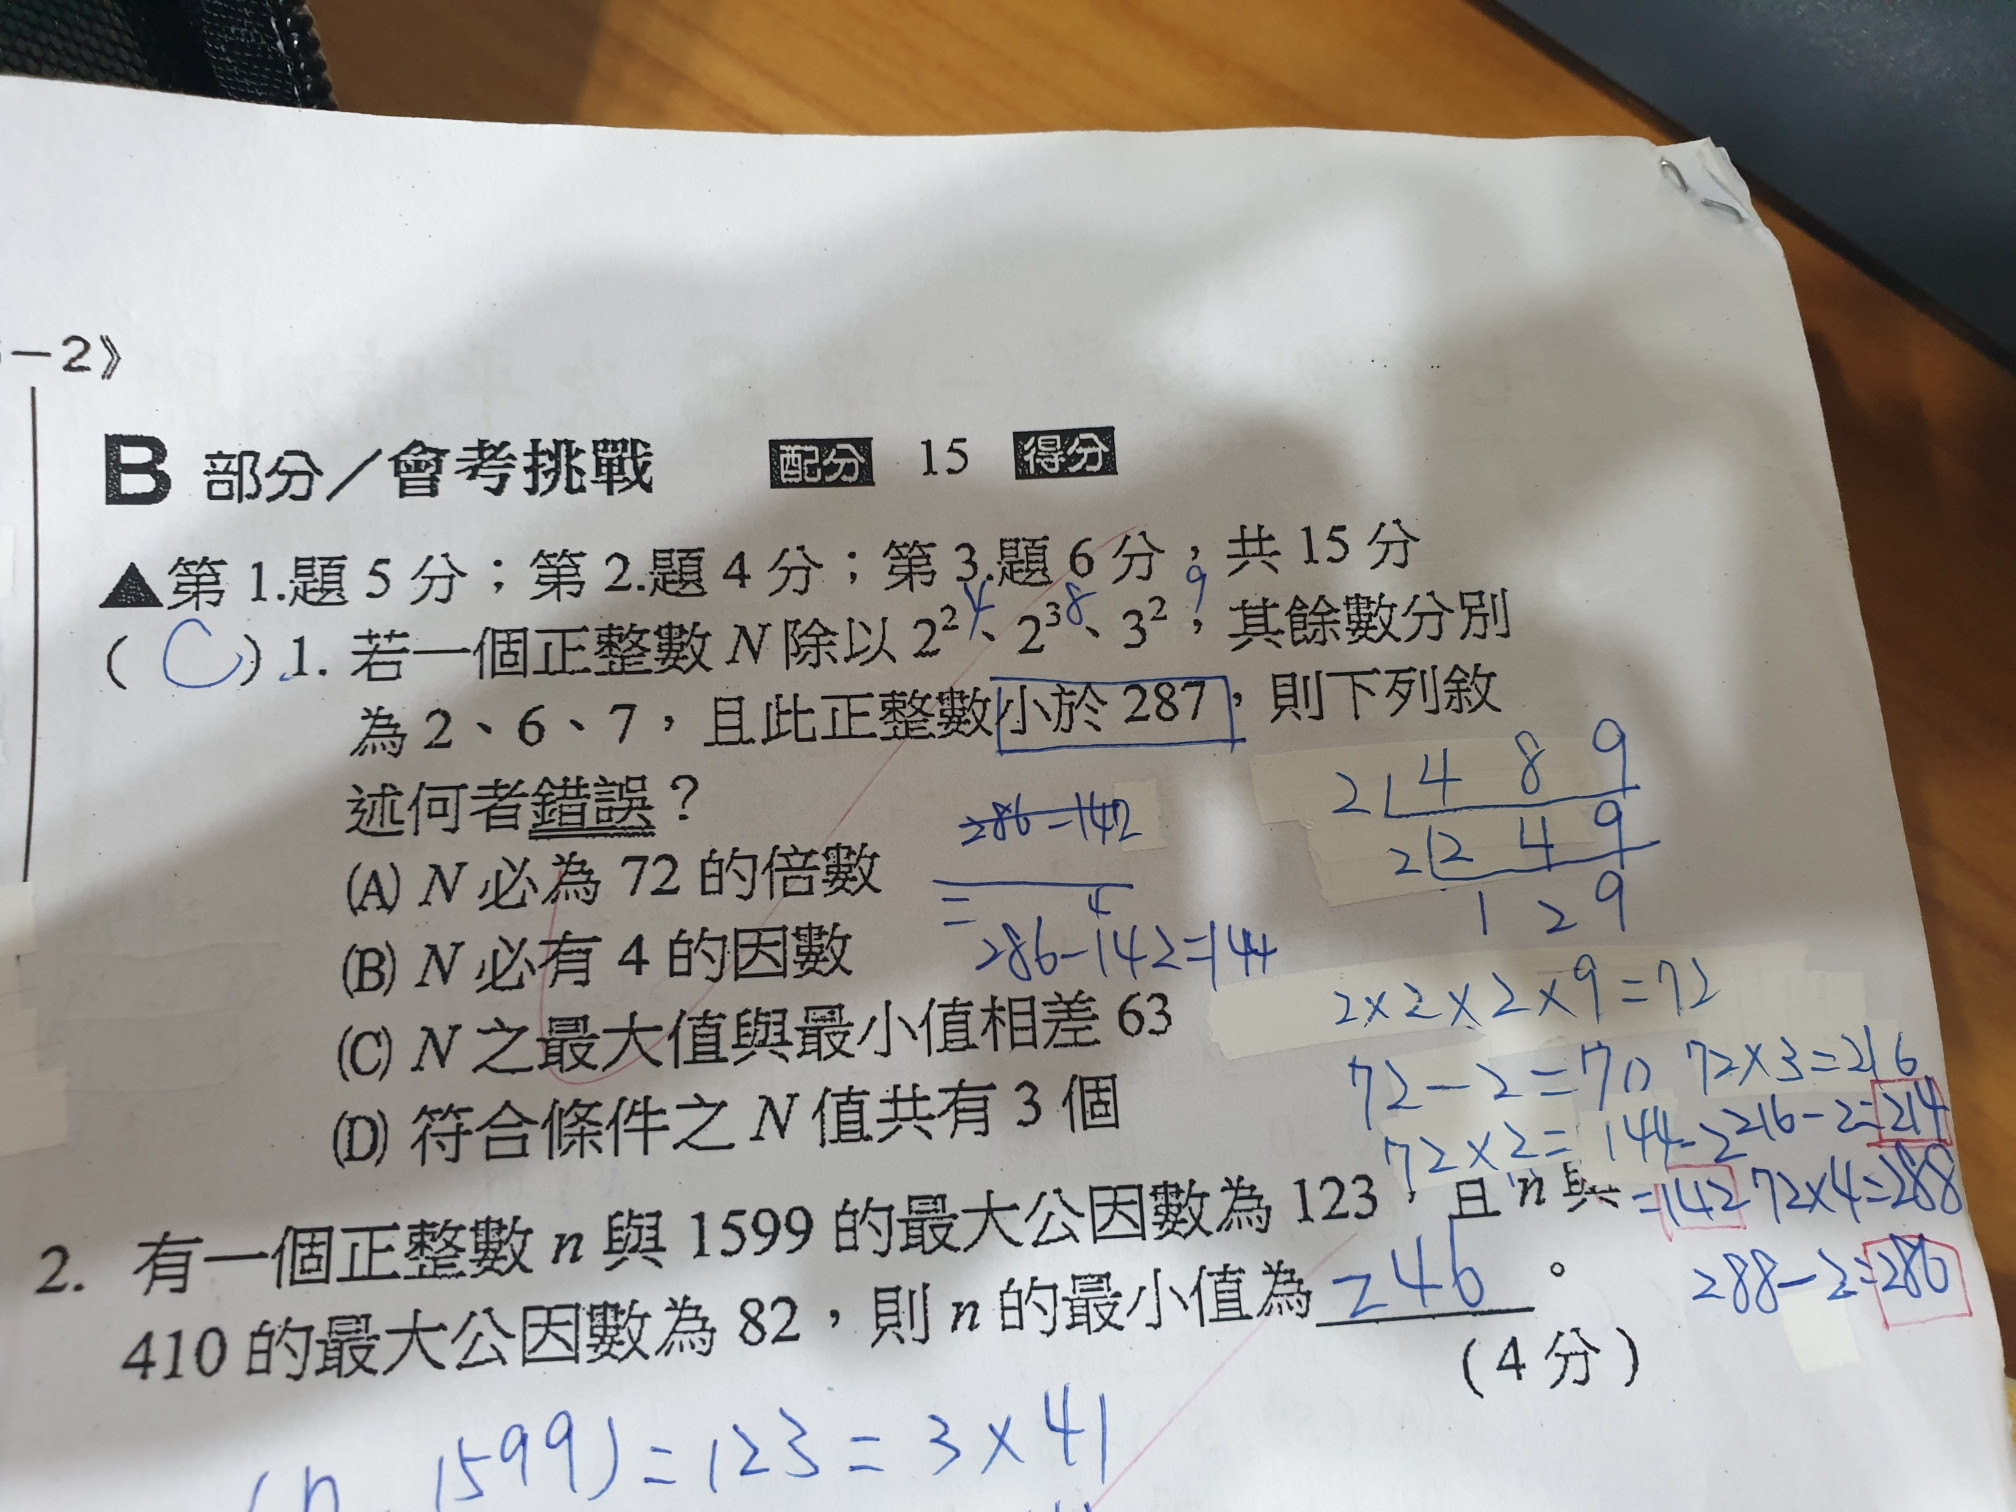 －2》
B 部分／會考挑戰 配分 15 得分
▲第 1.題 5 分；第 2.題 4 分；第 3.題 6 分；共 15 分
4 8 9
( C ) 1. 若一個正整數 N 除以 2²、2³、3²，其餘數分別
為 2、6、7，且此正整數小於 287，則下列敘
述何者錯誤？
(A) N 必為 72 的倍數
(B) N 必有 4 的因數
(C) N 之最大值與最小值相差 63
(D) 符合條件之 N 值共有 3 個
286-142
=
286-142=144
2 4 8 9
2 2 4 9
1 2 9
2×2×2×9=72
72-2=70
72×2=144-2
=142
72×3=216
216-2=214
72×4=288
288-2=286
2. 有一個正整數 n 與 1599 的最大公因數為 123，且 n 與
410 的最大公因數為 82，則 n 的最小值為 246 。
(4 分)
(n 1599)=123=3×41